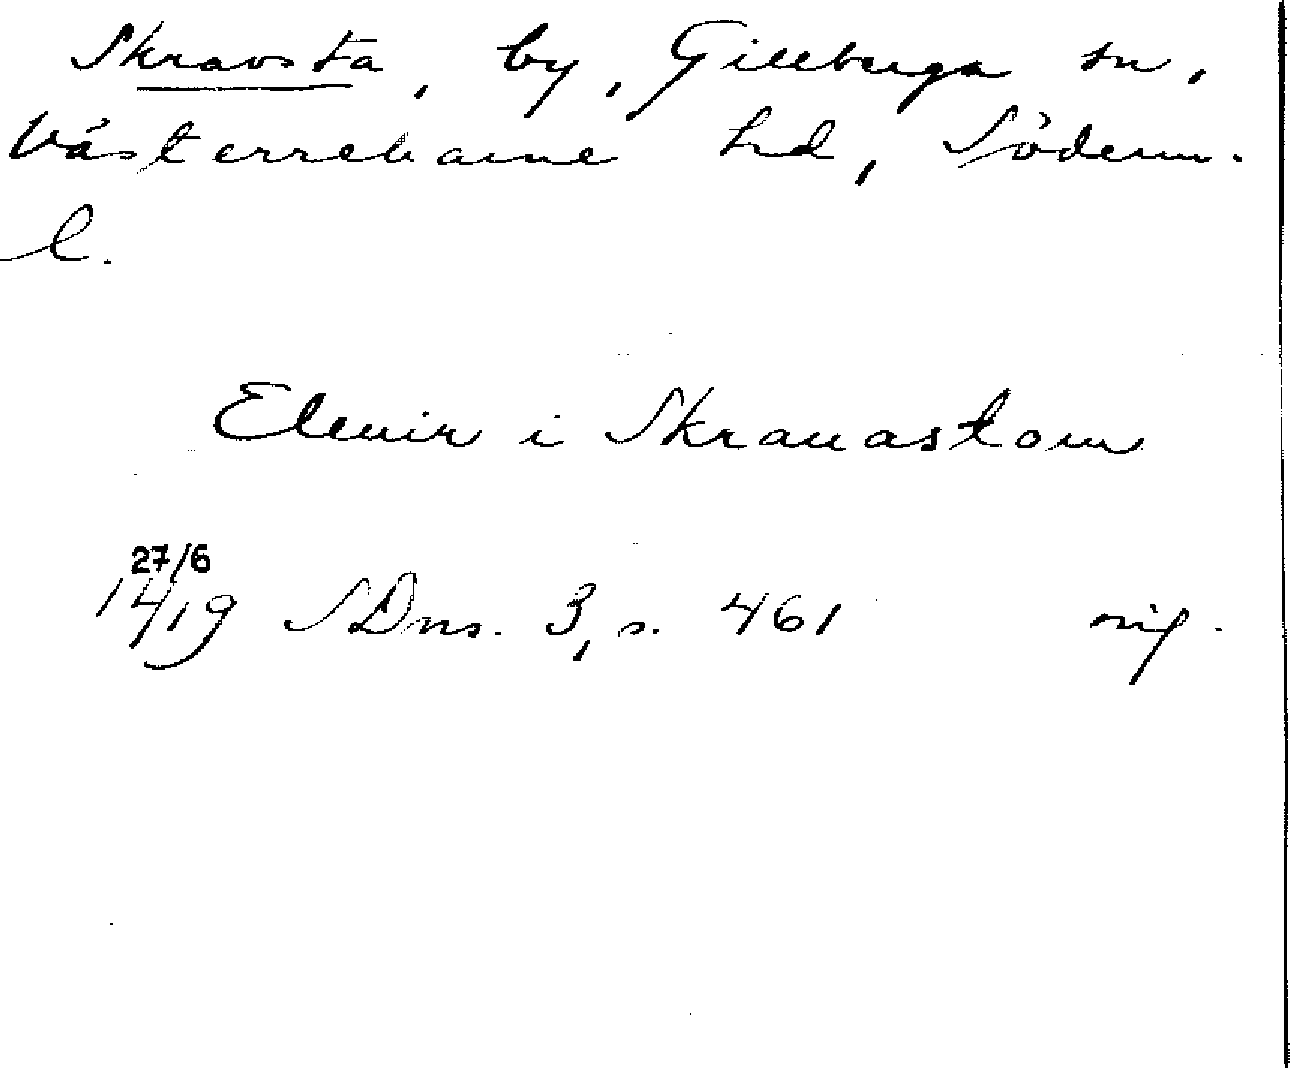 Skravsta, by, Gillberga sn,
Västerrekarne hd, Söderm.
l.
Eleuir i Skrauastom
27/6
1419 SDns. 3, s. 461 orig.